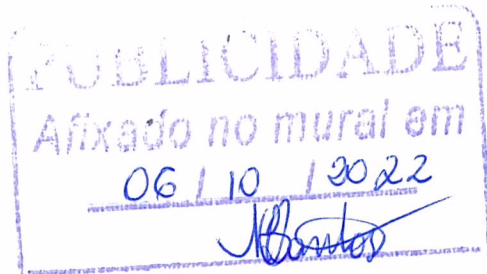 PUBLICIDADE
Afixado no mural em
06 / 10 / 2022